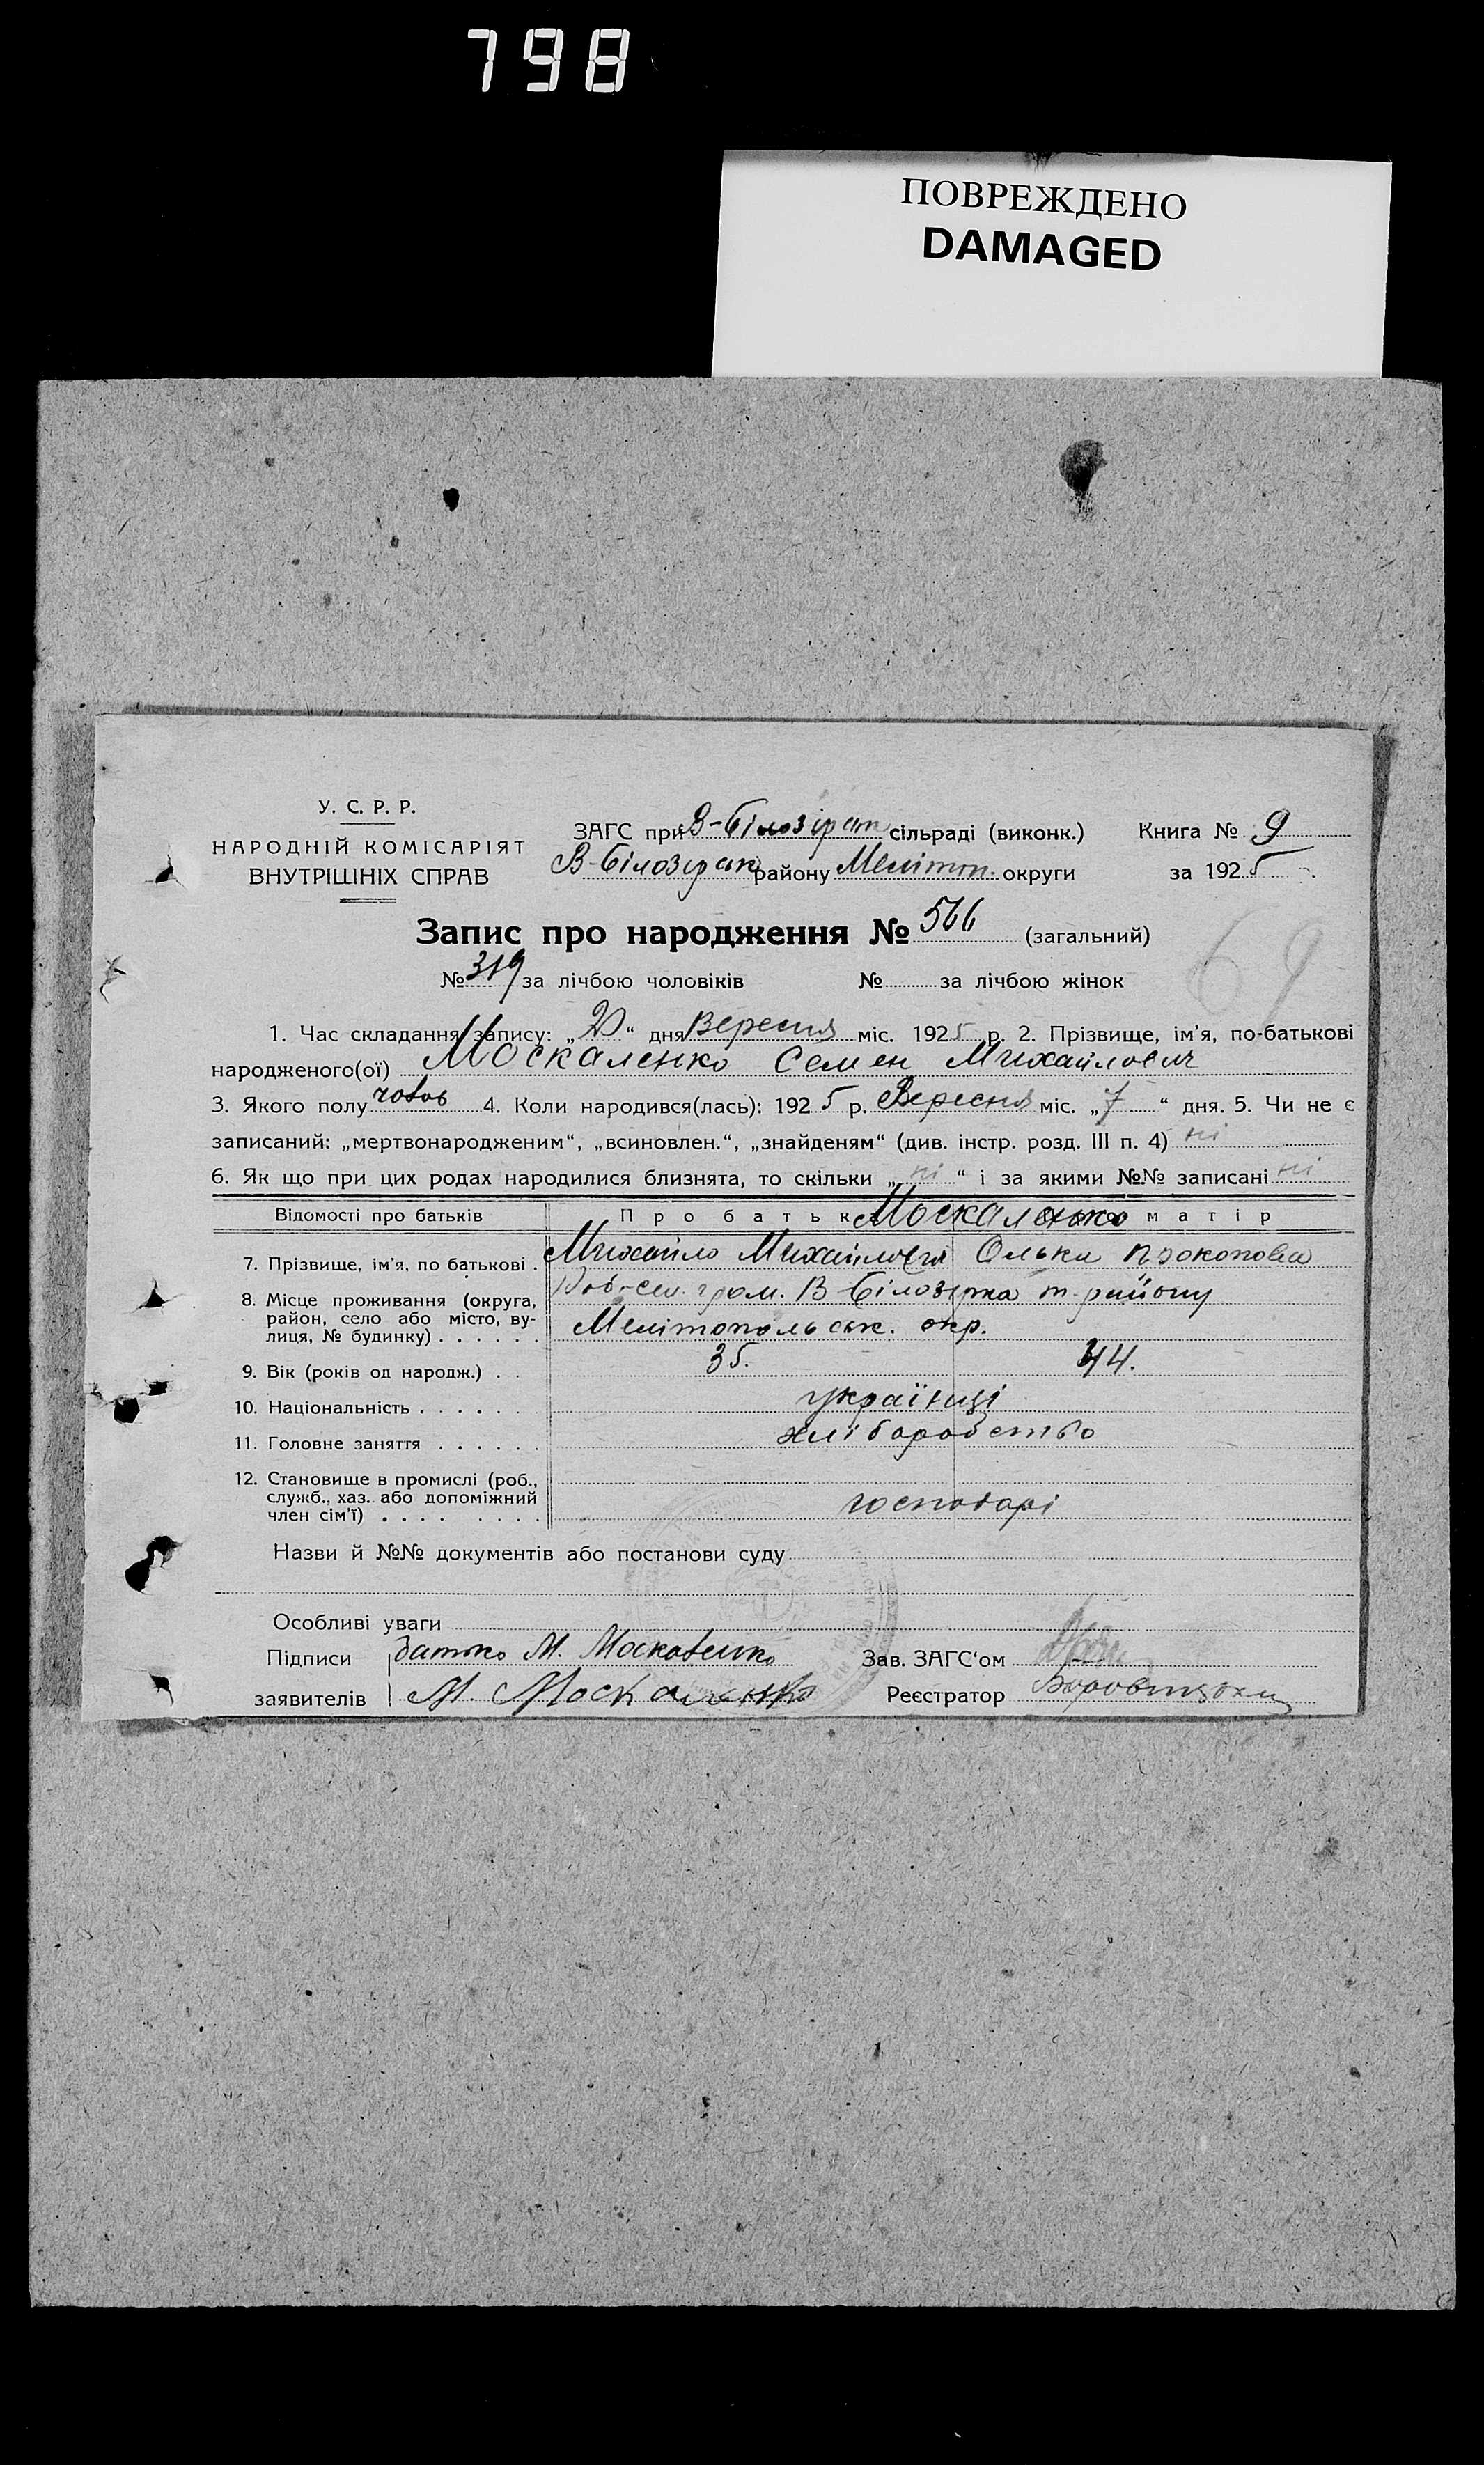 798
ПОВРЕЖДЕНО
DAMAGED
У. С. Р. Р.
НАРОДНІЙ КОМІСАРІЯТ
ВНУТРІШНІХ СПРАВ
ЗАГС при В-Білозірськ сільраді (виконк.)
В-Білозірськ району Меліт. округи
Книга № 9
за 1925
Запис про народження № 566 (загальний)
69
№ 319 за лічбою чоловіків № за лічбою жінок
1. Час складання запису: „20“ дня Вересня міс. 1925 р. 2. Прізвище, ім'я, по-батькові
народженого(ої) Москаленко Семен Михайлович
3. Якого полу чолов 4. Коли народився(лась): 1925 р. Вересня міс. „7“ дня. 5. Чи не є
записаний: „мертвонародженим“, „всиновлен.“, „знайденям“ (див. інстр. розд. III п. 4) ні
6. Як що при цих родах народилися близнята, то скільки „ні“ і за якими №№ записані ні
Відомості про батьків Про батька Москаленко матір
7. Прізвище, ім'я, по батькові . Михайло Михайлович Олька Прокоповна
8. Місце проживання (округа,
район, село або місто, ву-
лиця, № будинку) . . . . . .
гром. В Білозірка т. району
Мелітопольськ. окр.
9. Вік (років од народж.) . . 35. 44.
10. Національність . . . . . . українці
11. Головне заняття . . . . . . хліборобство
12. Становище в промислі (роб.,
служб., хаз. або допоміжний
член сім'ї) . . . . . . . .
господарі
Назви й №№ документів або постанови суду
Особливі уваги
Підписи батько М. Москаленко Зав. ЗАГС'ом
заявителів М. Москаленко Реєстратор